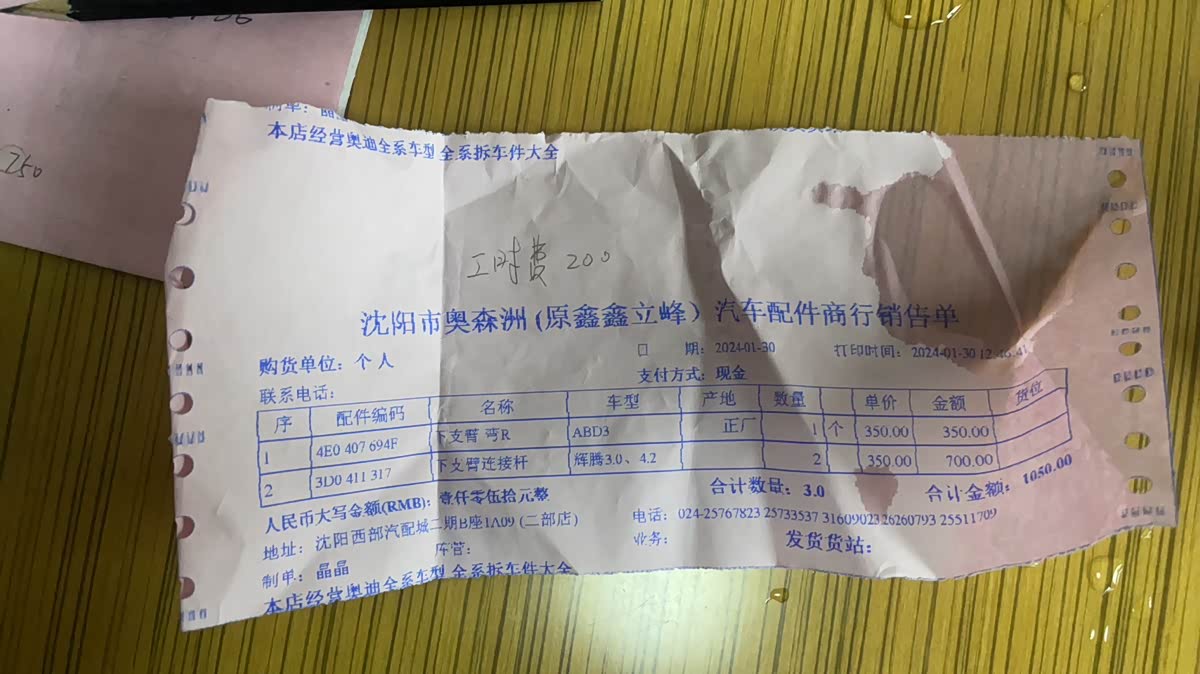 250
制单：晶晶
本店经营奥迪全系车型 全系拆车件大全
工时费 200
沈阳市奥森洲 (原鑫鑫立峰) 汽车配件商行销售单
购货单位：个人 日 期：2024-01-30 打印时间：2024-01-30
联系电话： 支付方式：现金
序 配件编码 名称 车型 产地 数量 单价 金额 货位
1 4E0 407 694F 下支臂 弯R ABD3 正厂 1 个 350.00 350.00
2 3D0 411 317 下支臂连接杆 辉腾3.0、4.2 2 350.00 700.00
人民币大写金额(RMB)：壹仟零伍拾元整 合计数量：3.0 合计金额：1050.00
地址：沈阳西部汽配城二期B座1A09 (二部店) 电话：024-25767823 25733537 31609023 26260793 25511709
制单：晶晶 库管： 业务： 发货货站：
本店经营奥迪全系车型 全系拆车件大全